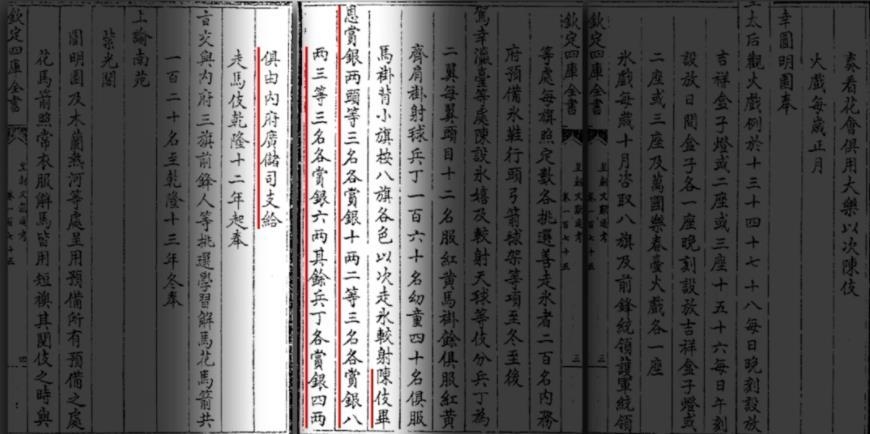 奏看花會俱用大樂以次陳伎
火戲每歲正月
幸圓明園奉
皇太后觀火戲例於十三十四十七十八每日晚刻設放
吉祥盒子燈或二座或三座十五十六每日午刻
設放日間盒子各一座晚刻設放吉祥盒子燈或
二座或三座及萬國樂春臺火戲各一座
氷戲每歲十月咨取八旗及前鋒統領護軍統領
欽定四庫全書 皇朝文獻通考 卷一百七十五 三
欽定四庫全書 皇朝文獻通考 卷一百七十五 三
等處每旗照定數各挑選善走氷者二百名內務
府預備氷鞋行頭弓箭球架等項至冬至後
駕幸瀛臺等處陳設氷嬉及較射天球等伎分兵丁為
二翼每翼頭目十二名服紅黃馬褂餘俱服紅黃
齊肩褂射球兵丁一百六十名幼童四十名俱服
馬褂背小旗按八旗各色以次走氷較射陳伎畢
恩賞銀兩頭等三名各賞銀十兩二等三名各賞銀八
兩三等三名各賞銀六兩其餘兵丁各賞銀四兩
俱由內府廣儲司支給
走馬伎乾隆十二年起奉
旨交與內府三旗前鋒人等挑選學習解馬花馬箭共
一百二十名至乾隆十三年冬奉
上諭南苑
紫光閣
圓明園及木蘭熱河等處呈用預備所有預備之處
花馬箭照常衣服解馬皆用短襖其閱伎之時與
欽定四庫全書 皇朝文獻通考 卷一百七十五 四